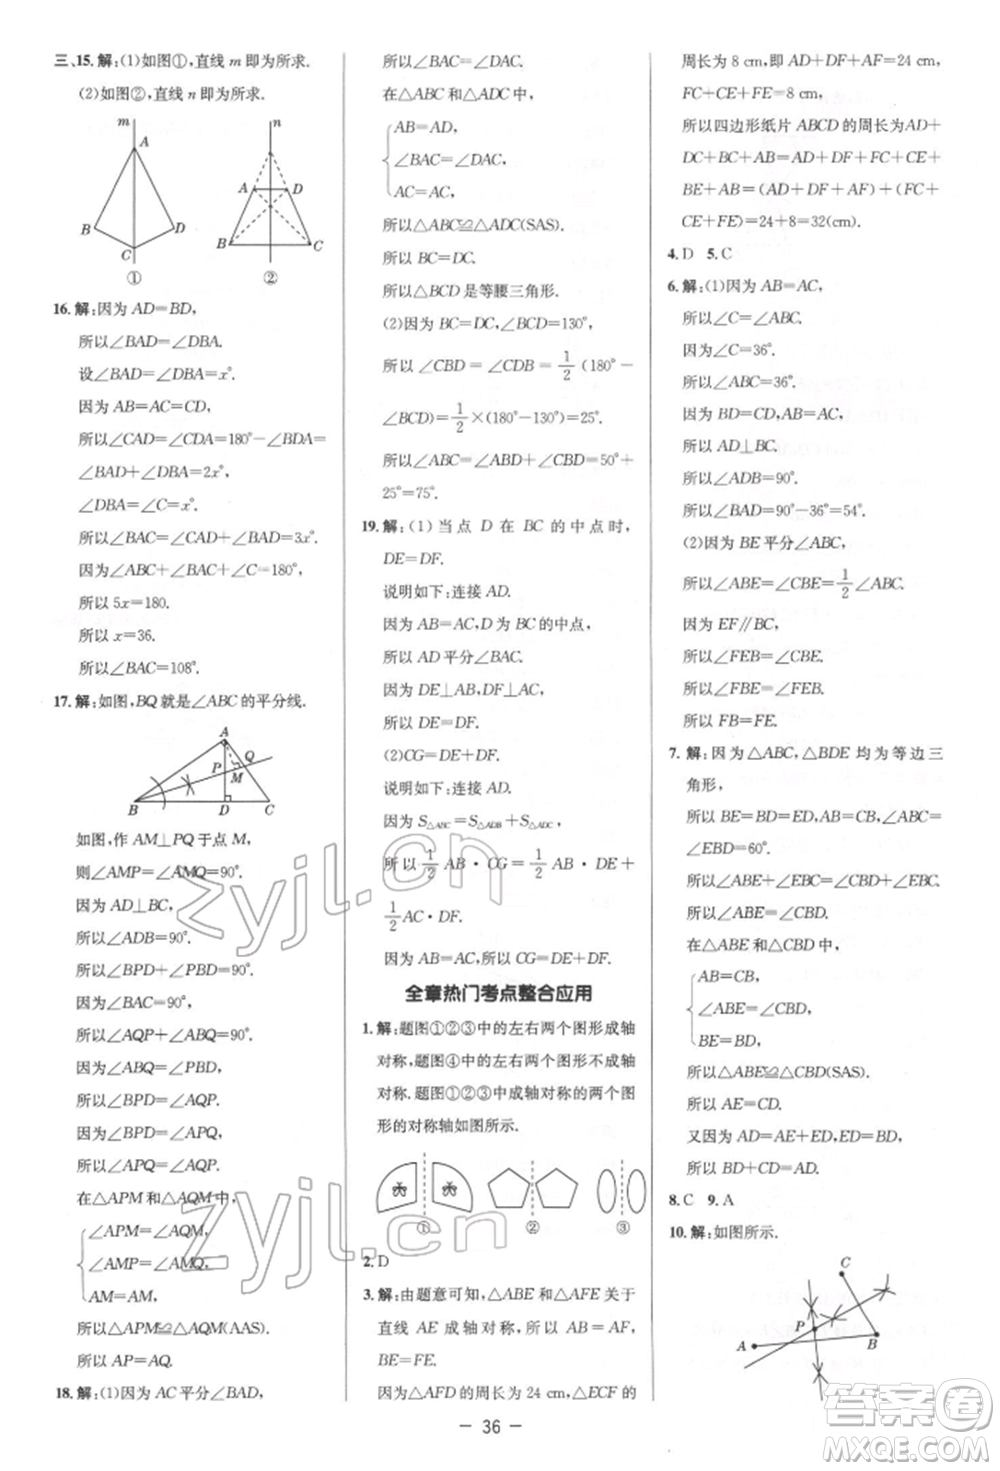 三、15. 解:(1)如图①,直线 m 即为所求.
(2)如图②,直线 n 即为所求.
m
A
B
D
C
①
n
A
D
B
C
②
16. 解:因为 AD=BD,
所以∠BAD=∠DBA.
设∠BAD=∠DBA=x°.
因为 AB=AC=CD,
所以∠CAD=∠CDA=180°-∠BDA=
∠BAD+∠DBA=2x°.
∠DBA=∠C=x°.
所以∠BAC=∠CAD+∠BAD=3x°.
因为∠ABC+∠BAC+∠C=180°,
所以 5x=180.
所以 x=36.
所以∠BAC=108°.
17. 解:如图,BQ 就是∠ABC 的平分线.
A
P
Q
M
B
D
C
如图,作 AM⊥PQ 于点 M,
则∠AMP=∠AMQ=90°.
因为 AD⊥BC,
所以∠ADB=90°.
所以∠BPD+∠PBD=90°.
因为∠BAC=90°,
所以∠AQP+∠ABQ=90°.
因为∠ABQ=∠PBD,
所以∠BPD=∠AQP.
因为∠BPD=∠APQ,
所以∠APQ=∠AQP.
在△APM 和△AQM 中,
∠APM=∠AQM,
∠AMP=∠AMQ,
AM=AM,
所以△APM≌△AQM(AAS).
所以 AP=AQ.
18. 解:(1)因为 AC 平分∠BAD,
所以∠BAC=∠DAC.
在△ABC 和△ADC 中,
AB=AD,
∠BAC=∠DAC,
AC=AC,
所以△ABC≌△ADC(SAS).
所以 BC=DC.
所以△BCD 是等腰三角形.
(2)因为 BC=DC,∠BCD=130°,
所以∠CBD=∠CDB=1/2(180°-
∠BCD)=1/2×(180°-130°)=25°.
所以∠ABC=∠ABD+∠CBD=50°+
25°=75°.
19. 解:(1)当点 D 在 BC 的中点时,
DE=DF.
说明如下:连接 AD.
因为 AB=AC,D 为 BC 的中点,
所以 AD 平分∠BAC.
因为 DE⊥AB,DF⊥AC,
所以 DE=DF.
(2)CG=DE+DF.
说明如下:连接 AD.
因为 S△ABC=S△ADB+S△ADC,
所以 1/2 AB·CG=1/2 AB·DE+
1/2 AC·DF.
因为 AB=AC,所以 CG=DE+DF.
全章热门考点整合应用
1. 解:题图①②③中的左右两个图形成轴
对称,题图④中的左右两个图形不成轴
对称.题图①②③中成轴对称的两个图
形的对称轴如图所示.
①
②
③
2. D
3. 解:由题意可知,△ABE 和△AFE 关于
直线 AE 成轴对称,所以 AB=AF,
BE=FE.
因为△AFD 的周长为 24 cm,△ECF 的
周长为 8 cm,即 AD+DF+AF=24 cm,
FC+CE+FE=8 cm,
所以四边形纸片 ABCD 的周长为AD+
DC+BC+AB=AD+DF+FC+CE+
BE+AB=(AD+DF+AF)+(FC+
CE+FE)=24+8=32(cm).
4. D 5. C
6. 解:(1)因为 AB=AC,
所以∠C=∠ABC.
因为∠C=36°,
所以∠ABC=36°.
因为 BD=CD,AB=AC,
所以 AD⊥BC.
所以∠ADB=90°.
所以∠BAD=90°-36°=54°.
(2)因为 BE 平分∠ABC,
所以∠ABE=∠CBE=1/2∠ABC.
因为 EF∥BC,
所以∠FEB=∠CBE.
所以∠FBE=∠FEB.
所以 FB=FE.
7. 解:因为△ABC,△BDE 均为等边三
角形,
所以 BE=BD=ED,AB=BC,∠ABC=
∠EBD=60°.
所以∠ABE+∠EBC=∠CBD+
∠EBC.所以∠ABE=∠CBD.
在△ABE 和△CBD 中,
AB=CB,
∠ABE=∠CBD,
BE=BD,
所以△ABE≌△CBD(SAS).
所以 AE=CD.
又因为 AD=AE+ED,ED=BD,
所以 BD+CD=AD.
8. C 9. A
10. 解:如图所示.
C
P
A
B
- 36 -
zyjl.cn
zyjl.cn
答案圈
MXQE.COM